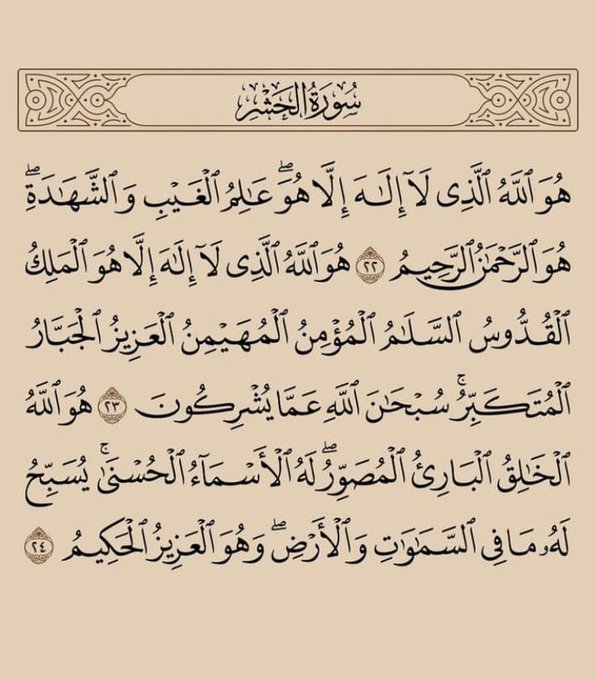 سُورَةُ الحَشْرِ
هُوَ ٱللَّهُ ٱلَّذِى لَآ إِلَٰهَ إِلَّا هُوَۖ عَٰلِمُ ٱلْغَيْبِ وَٱلشَّهَٰدَةِۖ
هُوَ ٱلرَّحْمَٰنُ ٱلرَّحِيمُ ٢٢ هُوَ ٱللَّهُ ٱلَّذِى لَآ إِلَٰهَ إِلَّا هُوَ ٱلْمَلِكُ
ٱلْقُدُّوسُ ٱلسَّلَٰمُ ٱلْمُؤْمِنُ ٱلْمُهَيْمِنُ ٱلْعَزِيزُ ٱلْجَبَّارُ
ٱلْمُتَكَبِّرُۚ سُبْحَٰنَ ٱللَّهِ عَمَّا يُشْرِكُونَ ٢٣ هُوَ ٱللَّهُ
ٱلْخَٰلِقُ ٱلْبَارِئُ ٱلْمُصَوِّرُۖ لَهُ ٱلْأَسْمَآءُ ٱلْحُسْنَىٰۚ يُسَبِّحُ
لَهُۥ مَا فِى ٱلسَّمَٰوَٰتِ وَٱلْأَرْضِۖ وَهُوَ ٱلْعَزِيزُ ٱلْحَكِيمُ ٢٤